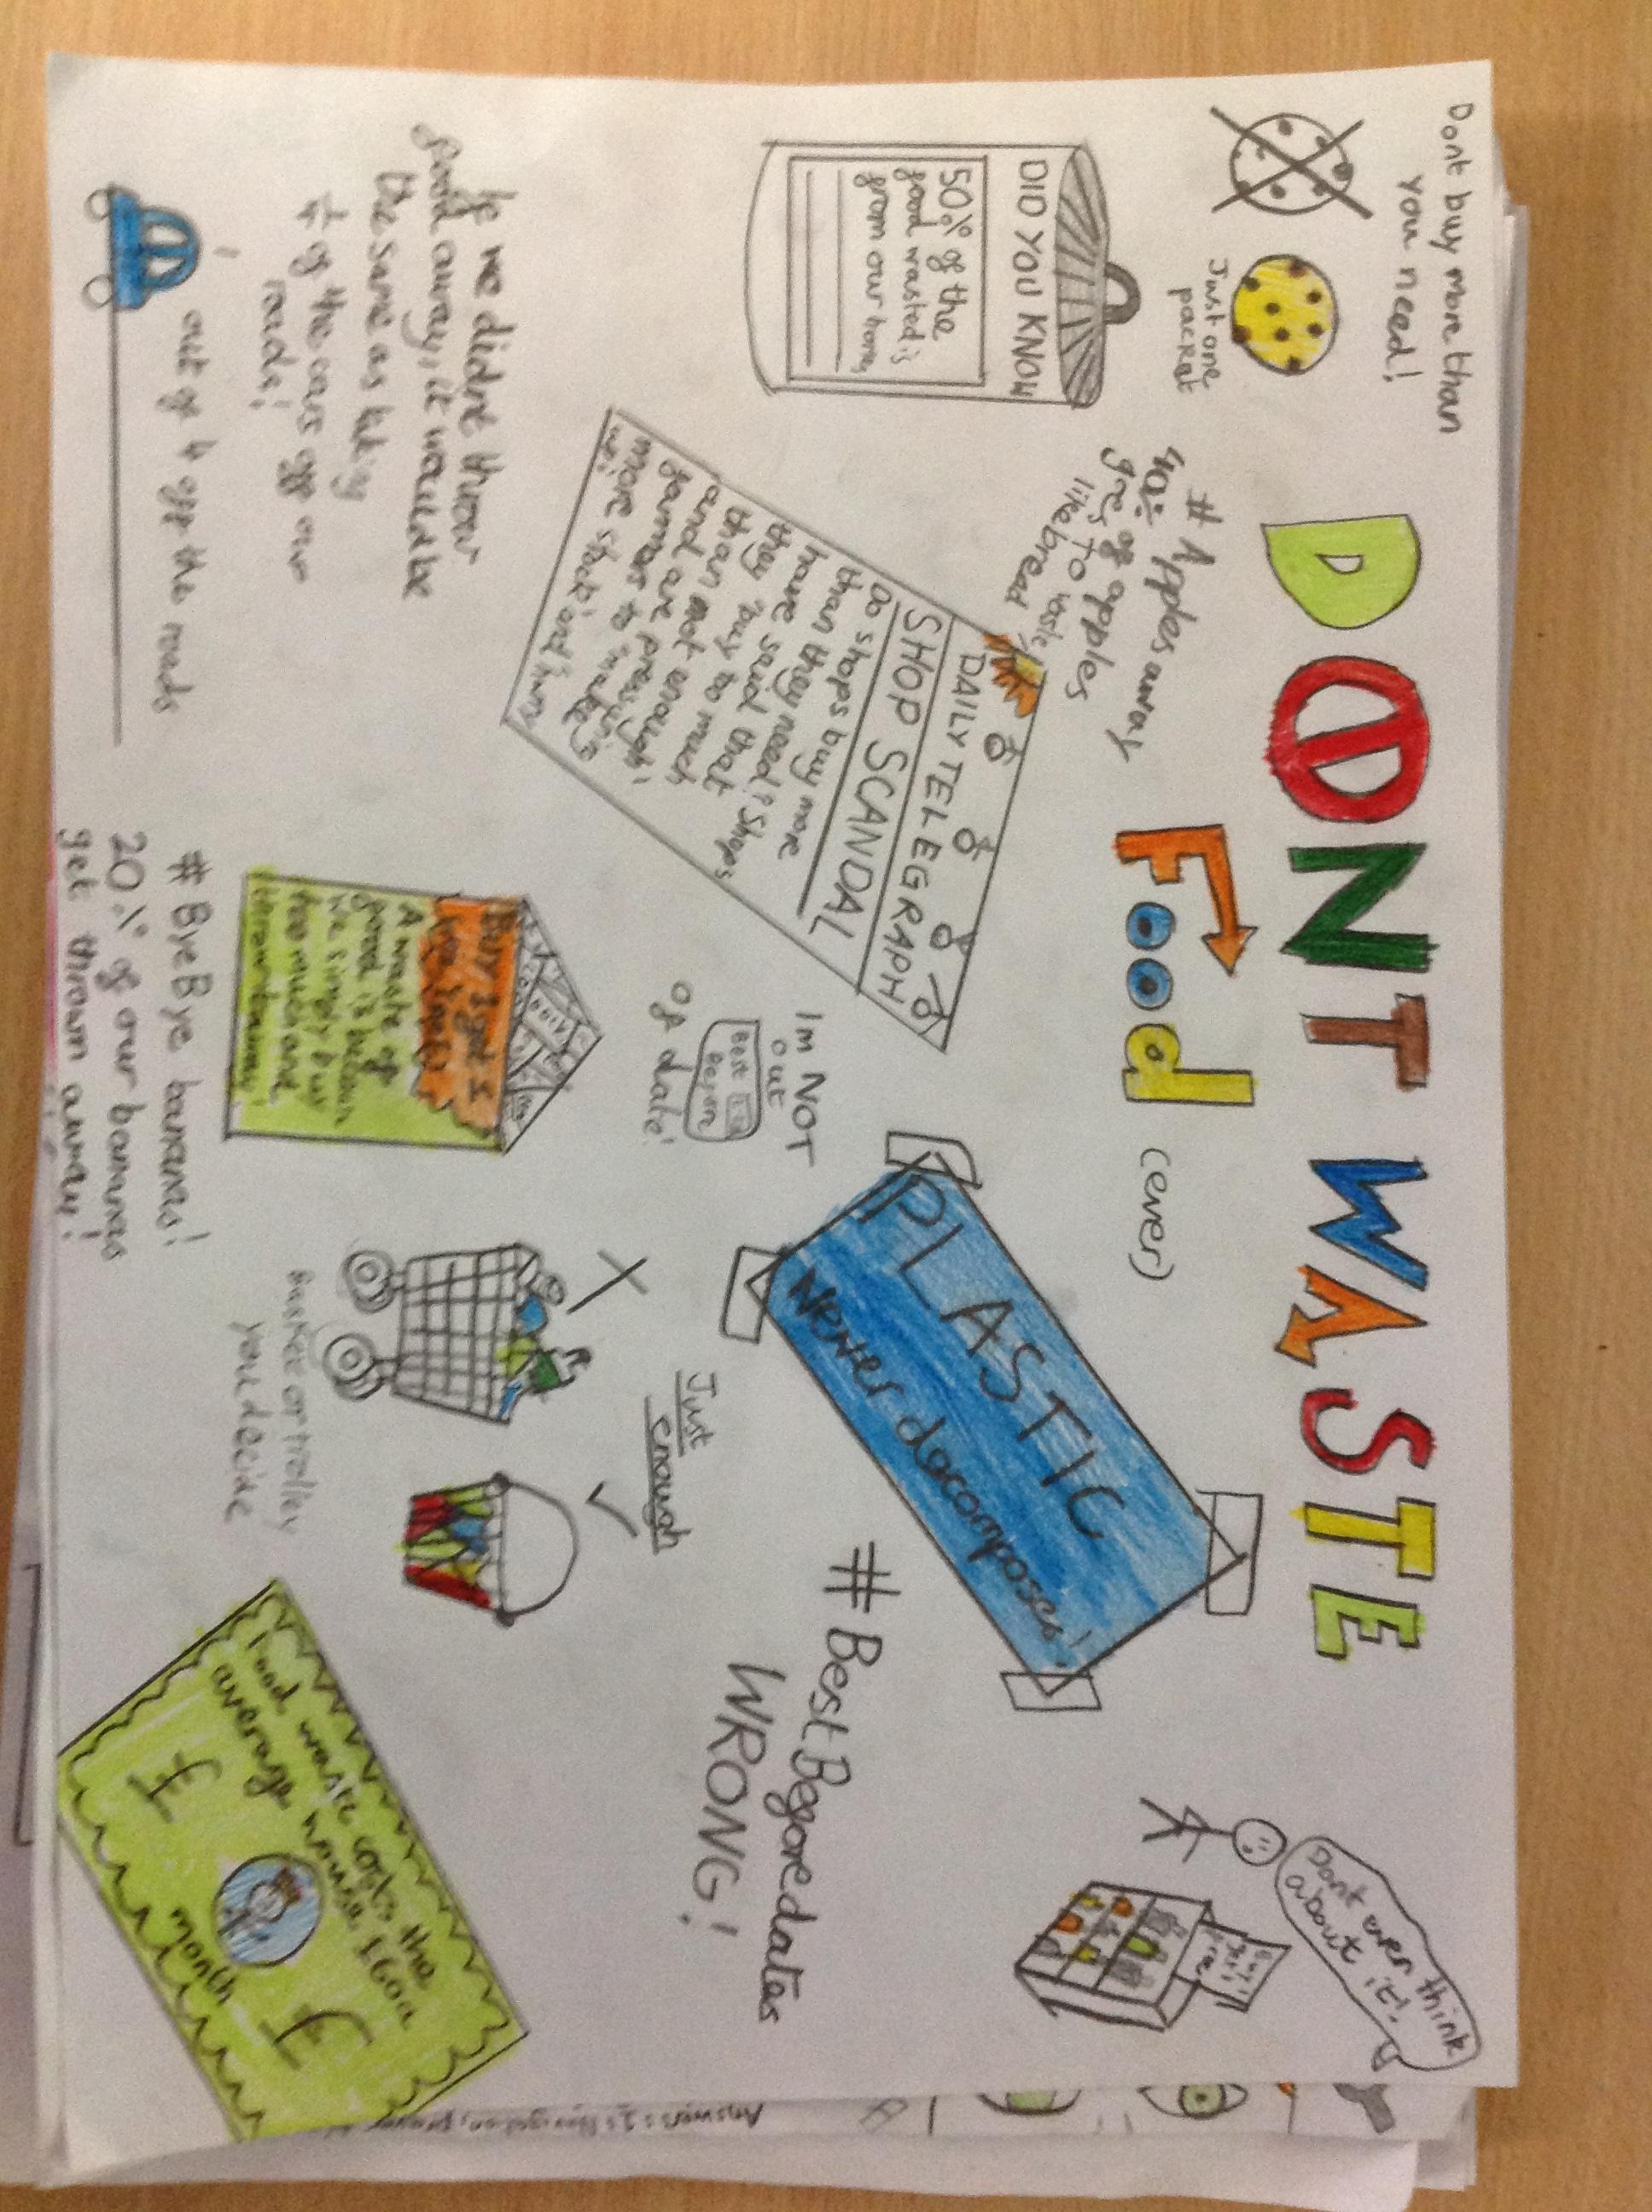 DONT WASTE
Food (ever)
Dont buy more than
you need!
Just one
packet
DID YOU KNOW
50% of the
food wasted is
from our home
# Apples away
40% of apples
goes to waste
like bread
DAILY TELEGRAPH
SHOP SCANDAL
Do shops buy more
than they need? Shops
have said that
they "buy to much
than not enough'
and are pressuring
farmers to "make
more stock' and 'harry
up'
If we didnt throw
food away, it would be
the same as taking
1/4 of the cars off our
roads!
1 out of 4 off the roads
Im NOT
out
Best
Before
Of date!
PLASTIC
Never docomposes!
# BestBeforedates
WRONG!
Dont even think
about it!
Buy 1
get 1
free
Buy 1 get 1
A waste of
food is below
we simply buy
too much and
throw away!
# ByeBye bananas!
20% of our bananas
get thrown away!
Just
enough
Basket or trolley
you decide
Food waste costs the
average house £60a
month
£
£